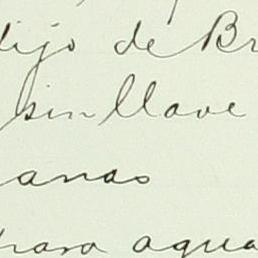 dijo de Br
sin llave
anas
para agua